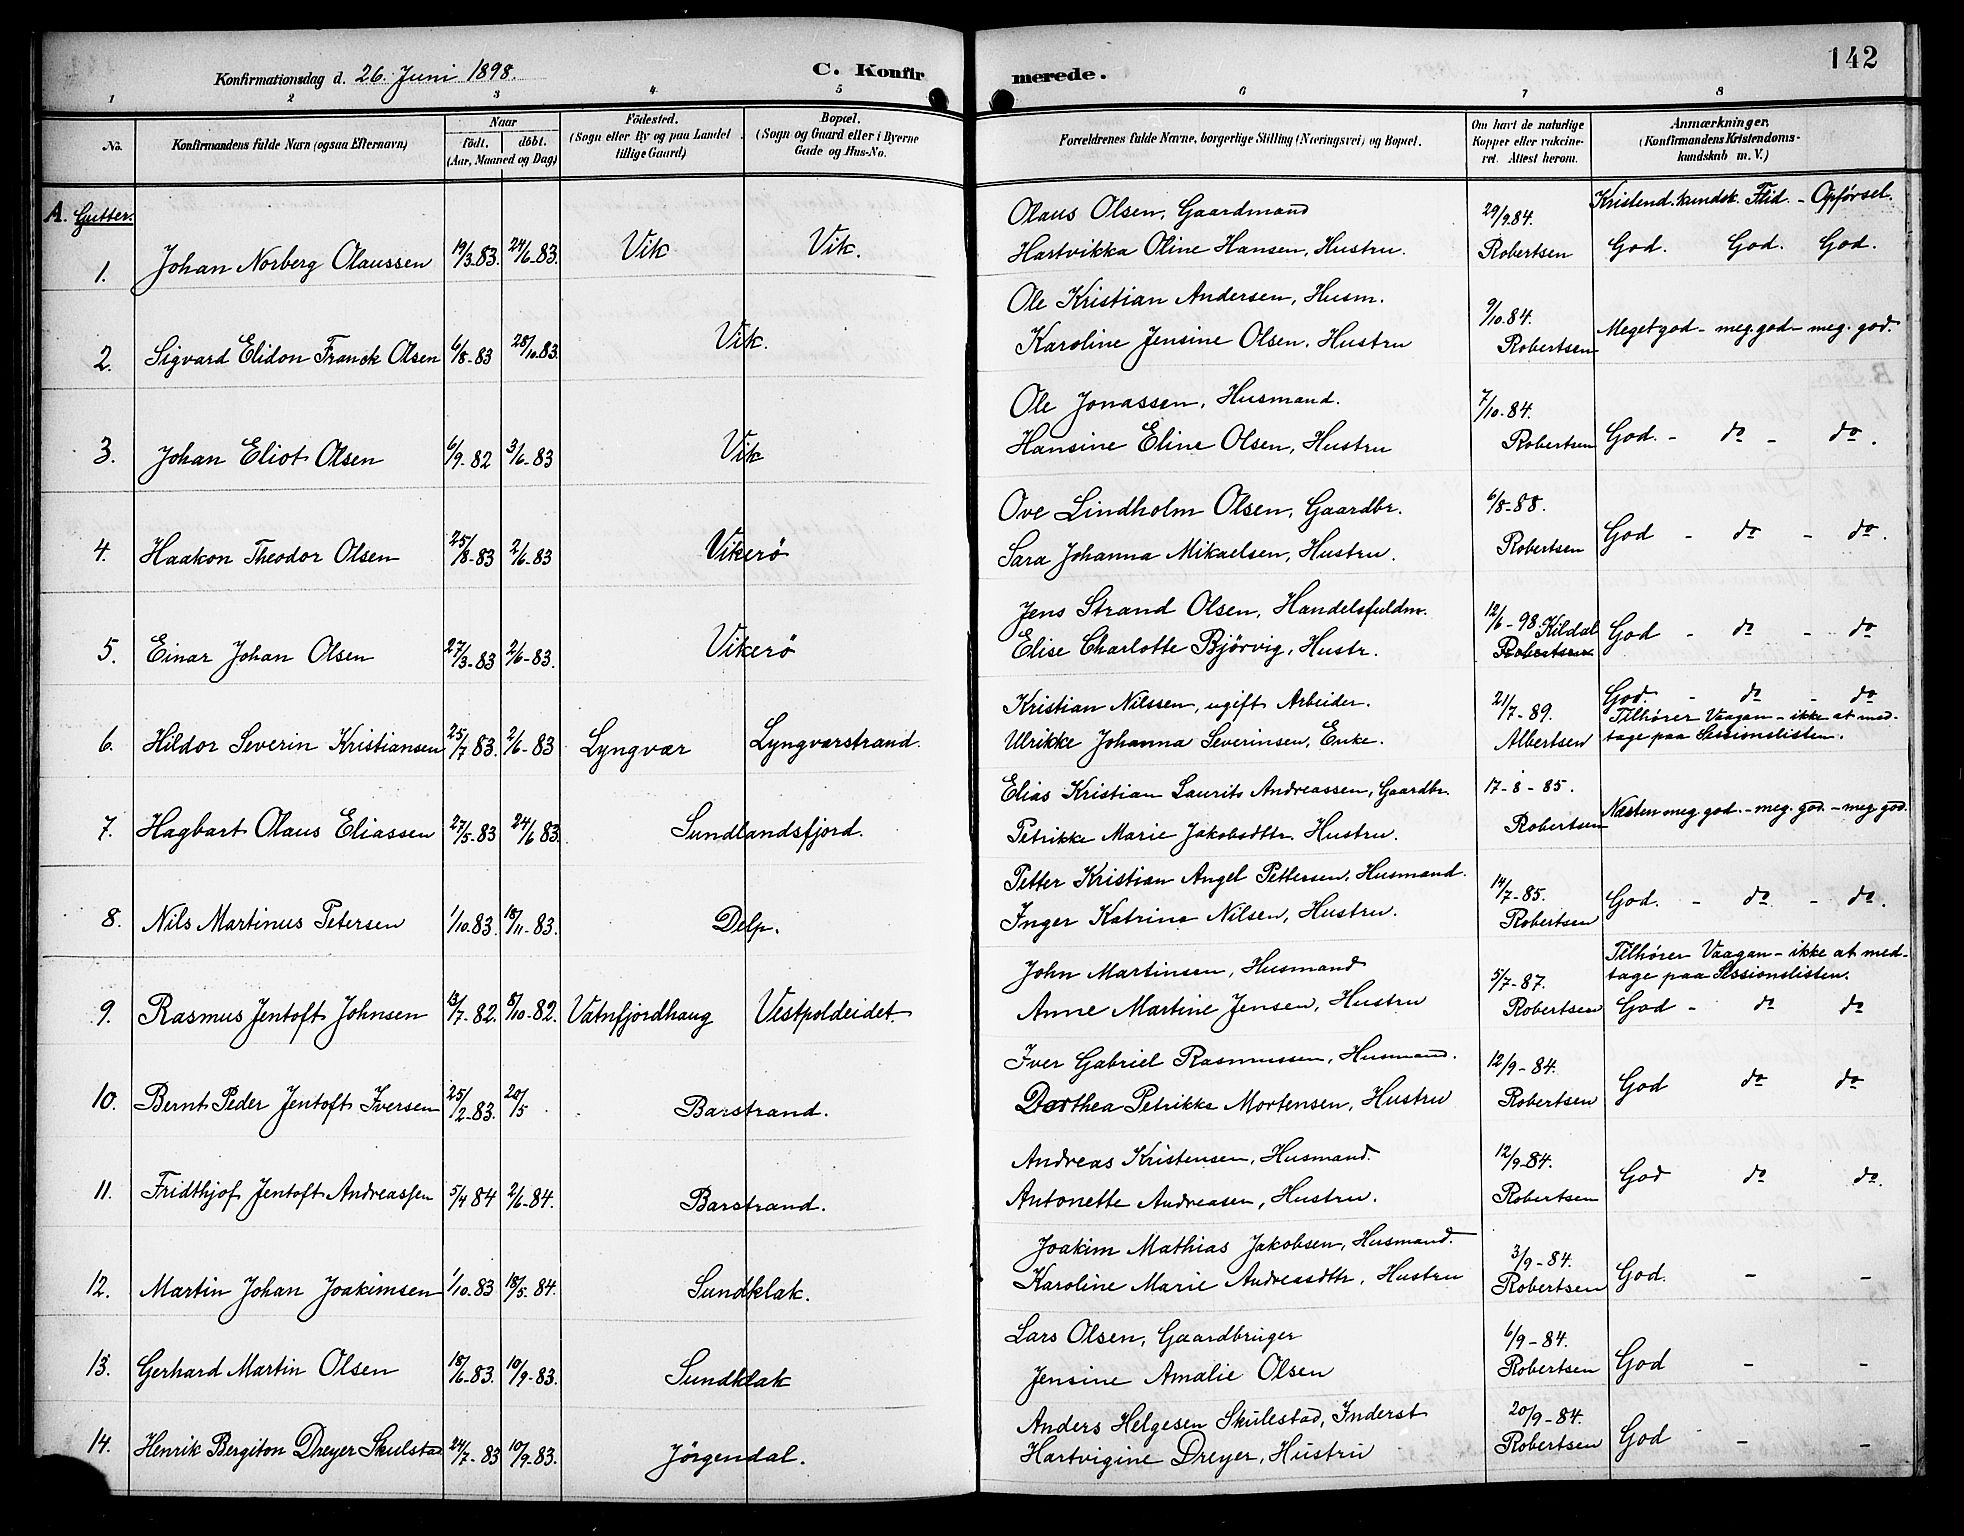 142
Konfirmationsdag d. 26. Juni 1898. C. Konfirmerede.
1 2 3 4 5 6 7 8
No. Konfirmandens fulde Navn (ogsaa Efternavn) Naar födt. döbt. (Aar, Maaned og Dag) Födested. (Sogn eller By og paa Landet tillige Gaard) Bopæl. (Sogn og Gaard eller i Byerne Gade og Hus-No. Forældrenes fulde Navne, borgerlige Stilling (Næringsvei) og Bopæl. Om havt de naturlige Kopper eller vakcineret. Attest herom. Anmærkninger. (Konfirmandens Kristendomskundskab m. V.)
A. Gutter.
Olaus Olsen, Gaardmand 29/9.84. Kristend.kundsk. Flid. - Opførsel.
1. Johan Norberg Olaussen 19/3-83. 24/6-83. Vik Vik. Hartvikka Oline Hansen, Hustru. Robertsen God. God. God.
Ole Kristian Andersen, Husm. 9/10.84.
2. Sigvard Elidon Franck Olsen 6/8-83 28/10.83. Vik. Karoline Jensine Olsen, Hustru Robertsen Meget god - meg. god - meg. god.
Ole Jonassen, Husmand. 7/10-84.
3. Johan Eliot Olsen 6/9-82 3/6-83 Vik Hansine Eline Olsen, Hustru Robertsen God. - do - do.
Ove Lindholm Olsen, Gaardbr. 6/8-88.
4. Haakon Theodor Olsen 25/8-83 2/6-83 Vikerö Sara Johanna Mikaelsen, Hustru. Robertsen God - do - do.
Jens Strand Olsen, Handelsfuldm. 12/6-98 Kildal
5. Einar Johan Olsen 27/3-83 2/6-83. Vikerö Elise Charlotte Bjørvig, Hustr. Robertsen God - do - do
Kristian Nilssen, ugift Arbeider. 21/7-89. God. - do - do
6. Hildor Severin Kristiansen 25/7 83. 2/6-83 Lyngvær Lyngværstrand. Ulrikke Johanna Severinsen, Enke. Albertsen Tilhører Vaagan - ikke at medtage paa Sessionslisten.
Elias Kristian Laurits Andreassen, Gaardbr. 17-8-85.
7. Hagbart Olaus Eliassen 27/5-83 24/6 83. Sundlandsfjord. Petrikke Marie Jakobsdtr. Hustru. Robertsen Næsten meg. god. - meg. god. - meg god.
Petter Kristian Angel Pettersen, Husmand. 14/7-85.
8. Nils Martinus Petersen 1/10.83. 18/11-83. Delp. Inger Katrina Nilsen, Hustru. Robertsen God. - do. - do.
John Martinsen, Husmand 5/7-87. Tilhører Vaagan - ikke at medtage paa Sessionslisten.
9. Rasmus Jentoft Johnsen 13/7-82. 8/10-82. Vatnfjordhaug Vestpoldeidet. Anne Martine Jensen, Hustru Robertsen God - do do
Iver Gabriel Rasmussen, Husmand. 12/9-84.
10. Bernt Peder Jentoft Iversen 25/2-83. 20/5 Barstrand. Dorthea Petrikke Mortensen, Hustru Robertsen God do do
Andreas Kristensen, Husmand. 12/9-84.
11. Fridthjof Jentoft Andreassen 5/4 84 2/6-84. Barstrand. Antonette Andreasen, Hustru. Robertsen God do do.
Joakim Mathias Jakobsen, Husmand. 3/9-84.
12. Martin Johan Joakimsen 1/10.83 18/5-84. Sundklak. Karoline Marie Andreasdtr, Hustru Robertsen God. - -
Lars Olsen, Gaardbruger 6/9-84.
13. Gerhard Martin Olsen 18/6-83. 10/9-83. Sundklak Jensine Amalie Olsen Robertsen God - -
Anders Helgesen Skulestad, Inderst 20/9-84.
14. Henrik Bergiton Dreyer Skulstad 24/7-83 10/9-83. Jörgendal. Hartvigine Dreyer, Hustru Robertsen God - -